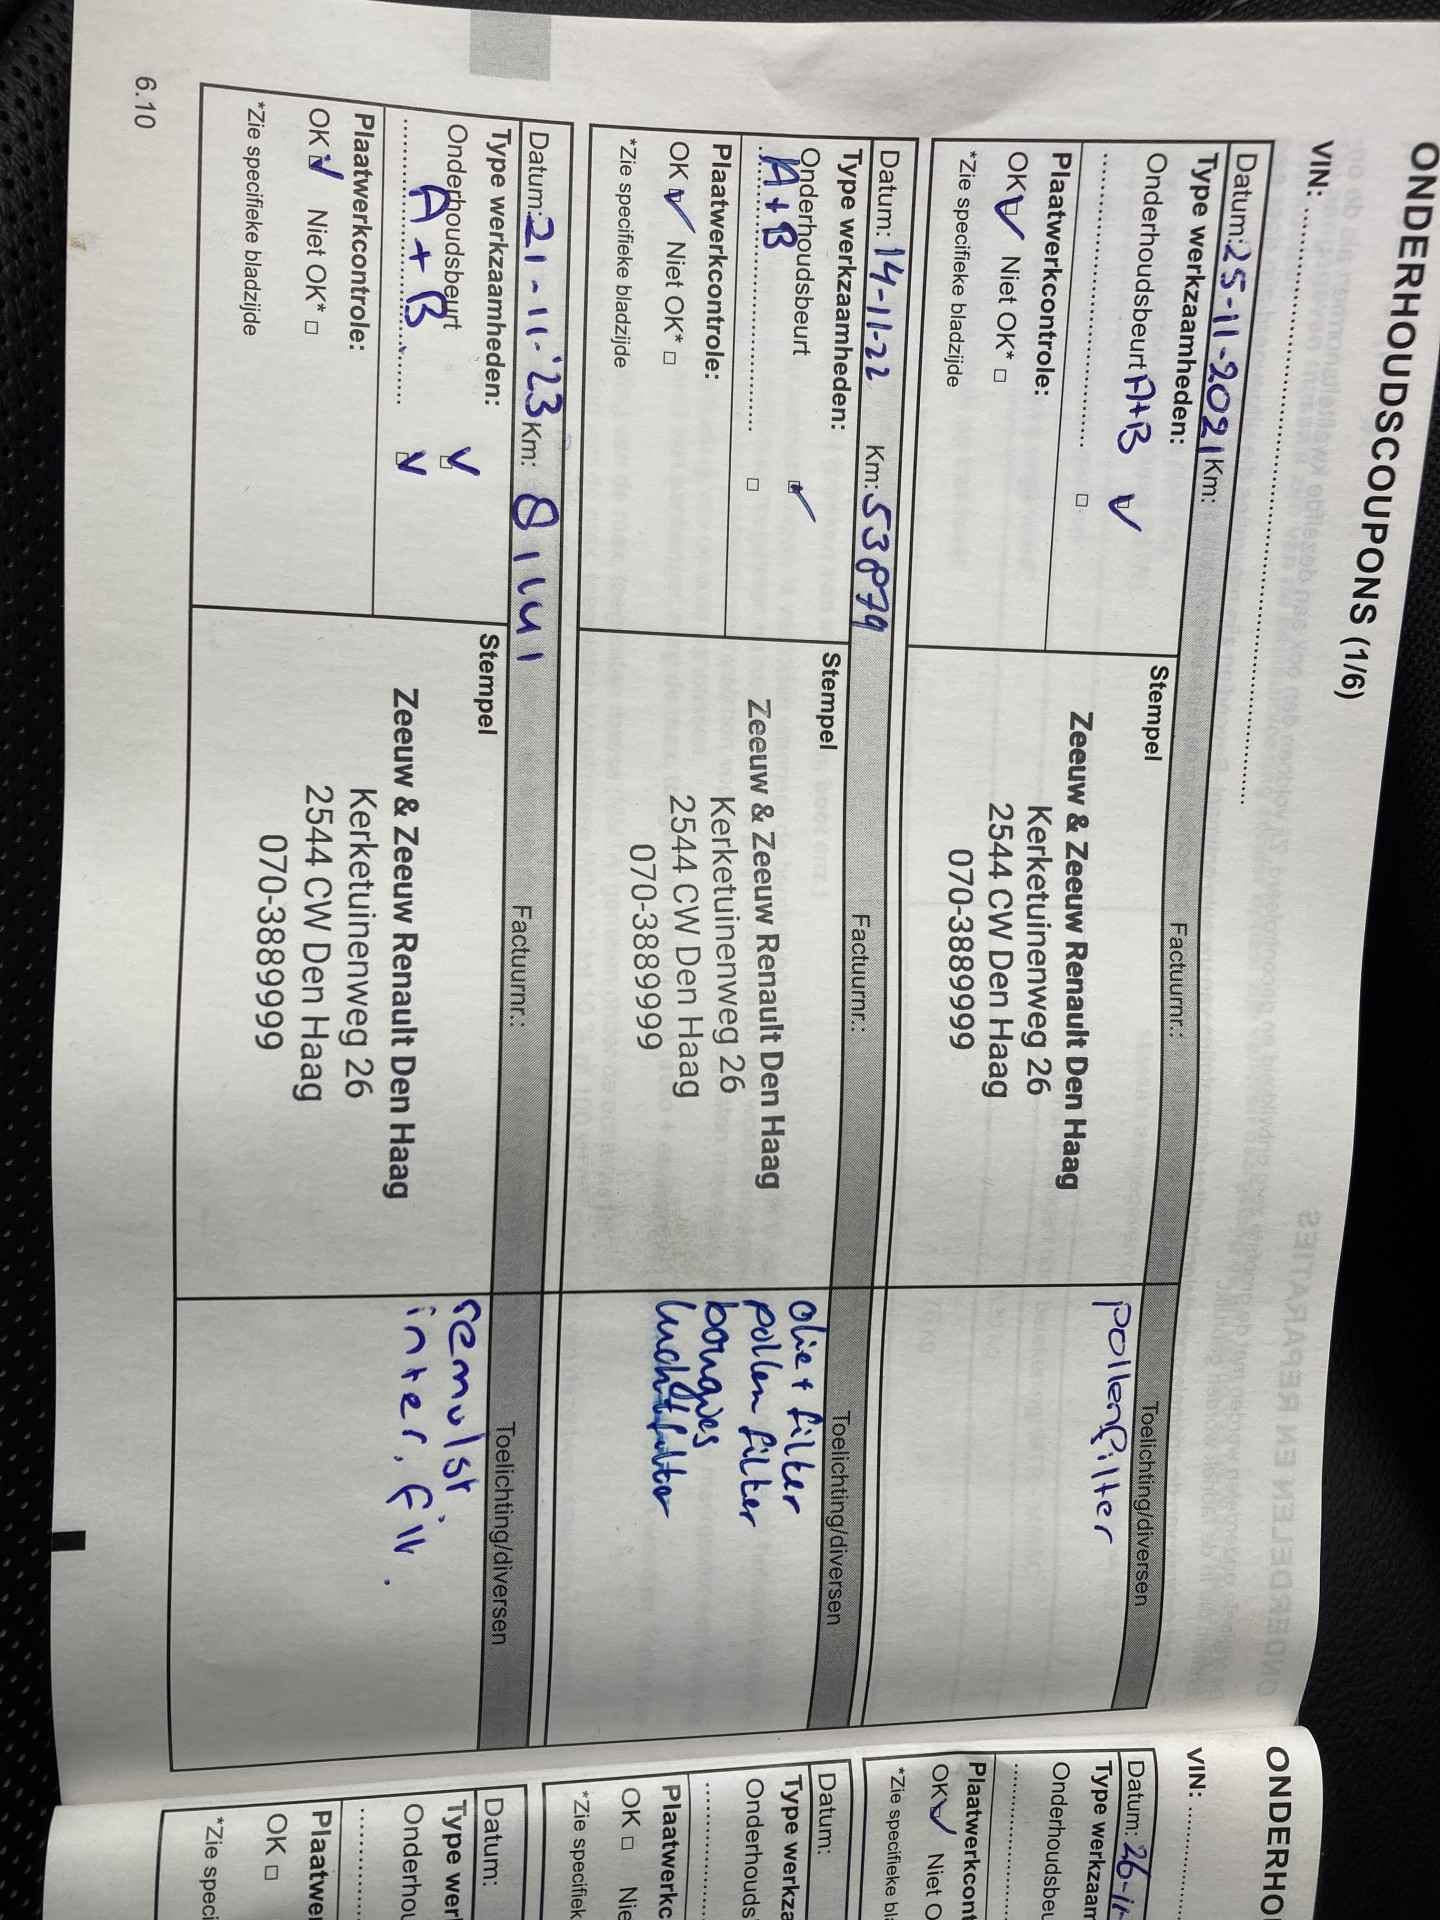 ONDERHOUDSCOUPONS (1/6)
VIN: ..........................................................
Datum: 25-11-2021 Km:
Factuurnr.:
Toelichting/diversen
Type werkzaamheden:
Onderhoudsbeurt A+B
Plaatwerkcontrole:
OK Niet OK*
*Zie specifieke bladzijde
Stempel
Zeeuw & Zeeuw Renault Den Haag
Kerketuinenweg 26
2544 CW Den Haag
070-3889999
Pollenfilter
Datum: 14-11-22 Km: 53879
Factuurnr.:
Toelichting/diversen
Type werkzaamheden:
Onderhoudsbeurt
A+B
Plaatwerkcontrole:
OK Niet OK*
*Zie specifieke bladzijde
Stempel
Zeeuw & Zeeuw Renault Den Haag
Kerketuinenweg 26
2544 CW Den Haag
070-3889999
olie + filter
pollen filter
bougies
luchtfilter
Datum: 21-11-'23 Km: 81141
Factuurnr.:
Toelichting/diversen
Type werkzaamheden:
Onderhoudsbeurt
A+B
Plaatwerkcontrole:
OK Niet OK*
*Zie specifieke bladzijde
Stempel
Zeeuw & Zeeuw Renault Den Haag
Kerketuinenweg 26
2544 CW Den Haag
070-3889999
remvlst
inter. filt.
6.10
ONDERHO
VIN:
Datum: 26-11-
Type werkzaam
Onderhoudsbeu
Plaatwerkcont
OK Niet O
*Zie specifieke bla
Datum:
Type werkza
Onderhouds
Plaatwerkc
OK Nie
*Zie specifiek
Datum:
Type werk
Onderhou
Plaatwer
OK
*Zie speci